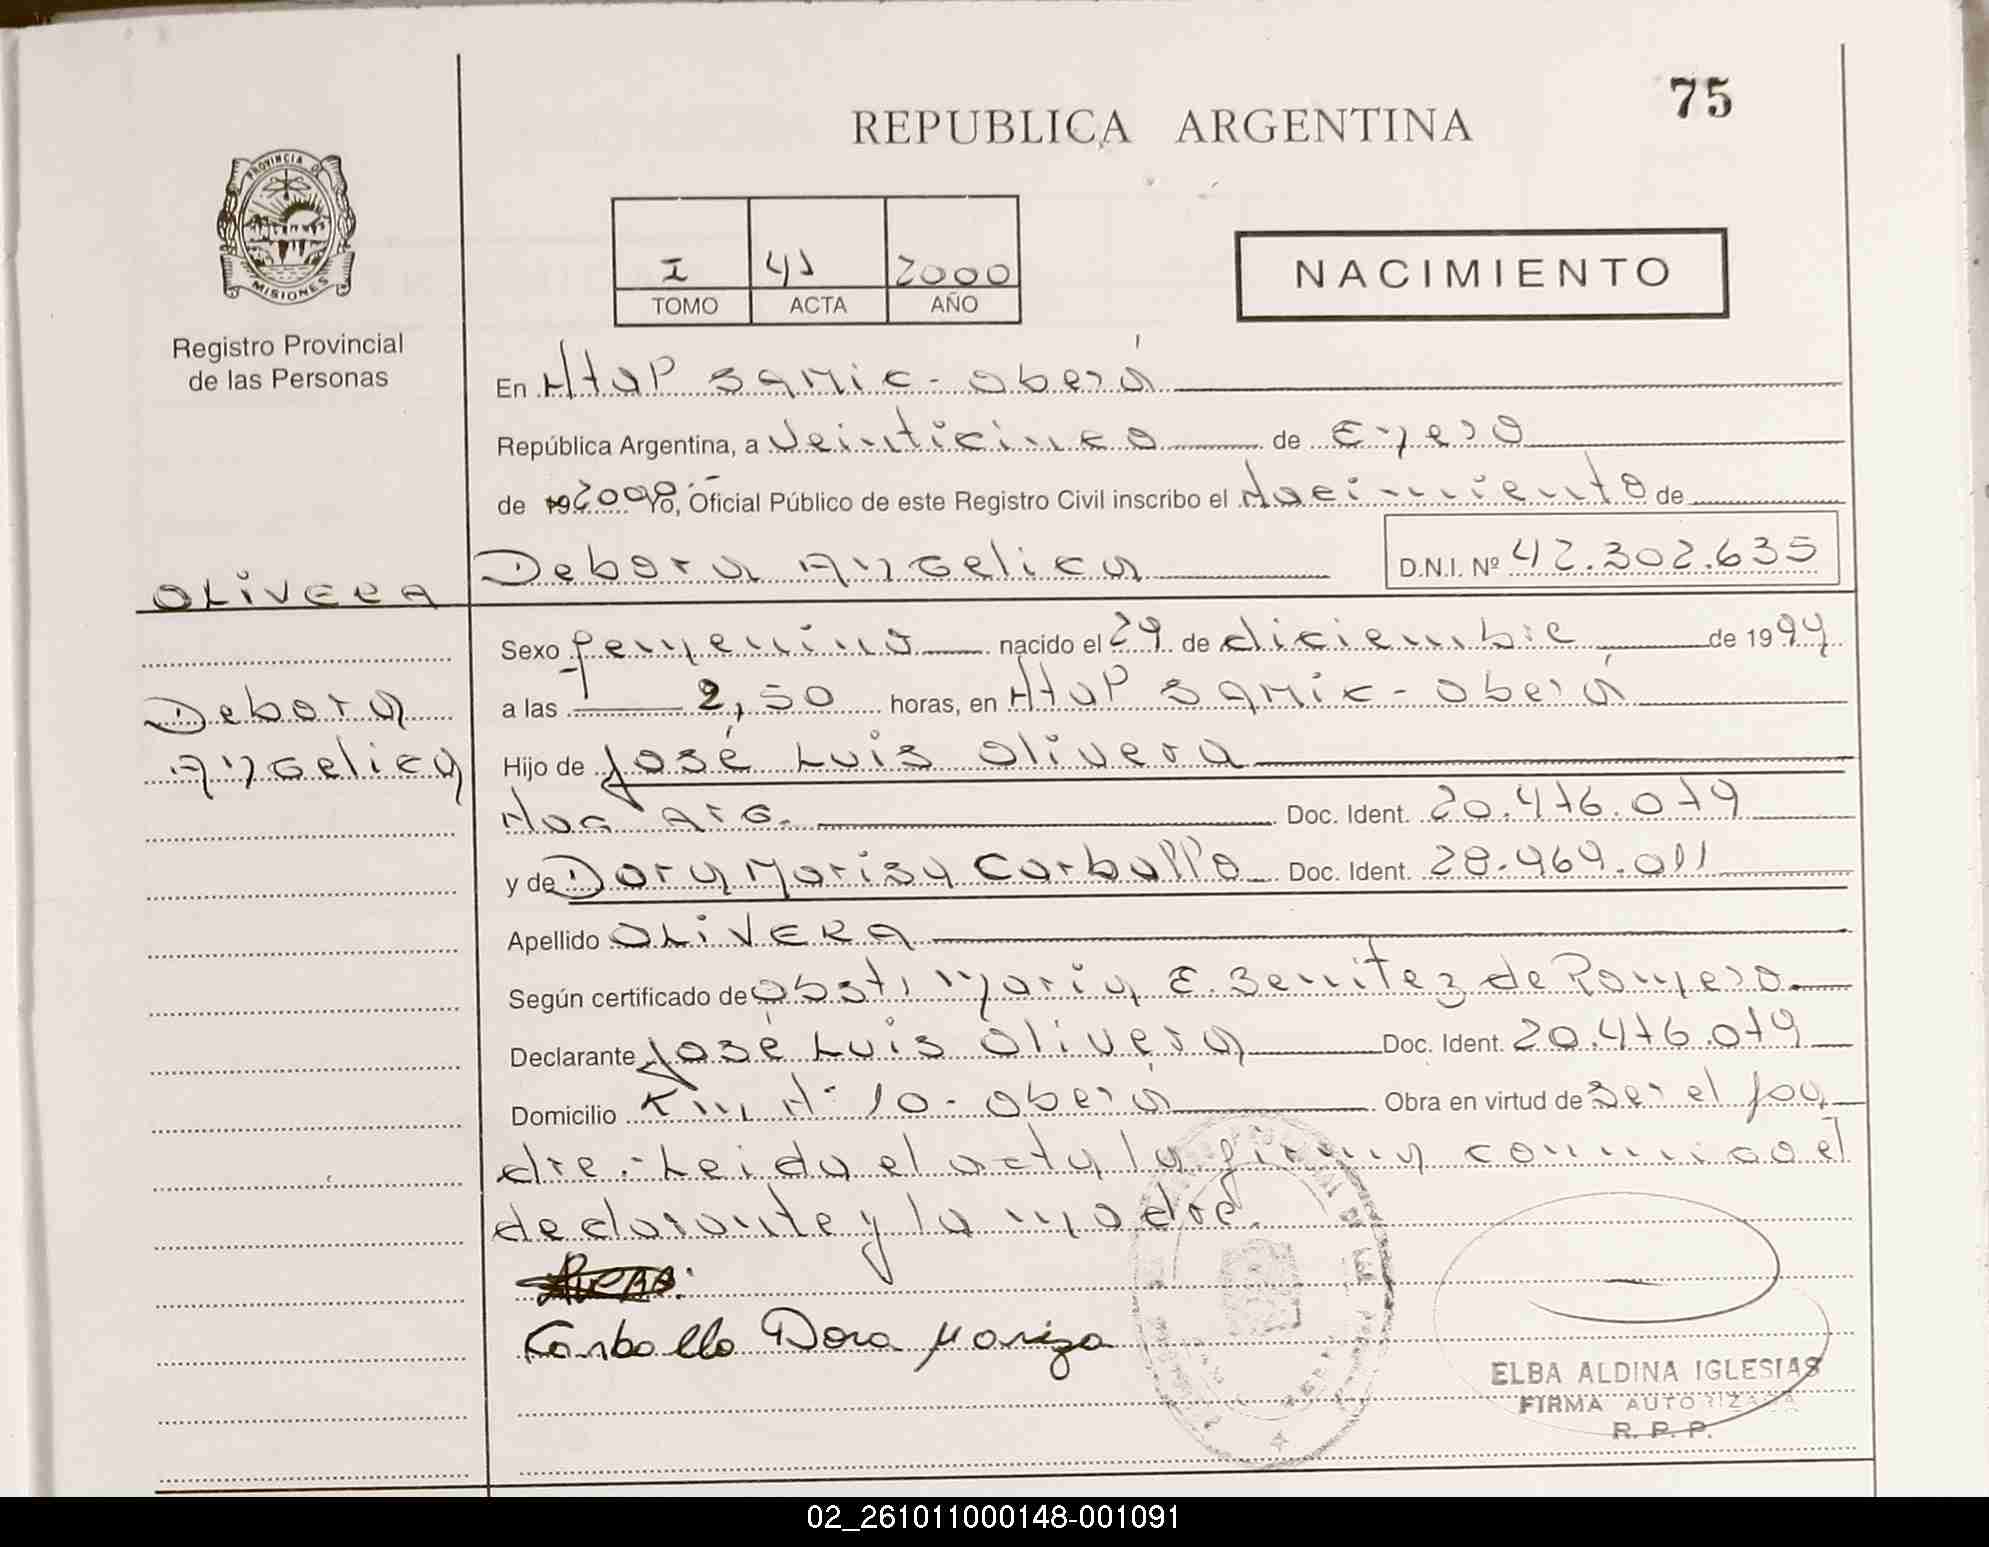 75
REPUBLICA ARGENTINA
PROVINCIA DE
MISIONES
Registro Provincial
de las Personas
I 41 2000
TOMO ACTA AÑO
NACIMIENTO
En HtaP SAMIC - Oberá
República Argentina, a Veinticinco de Enero
de 19 2000, Yo, Oficial Público de este Registro Civil inscribo el Nacimiento de
OLIVERA
Debora Angelica
D.N.I. Nº 42.302.635
Debora
Angelica
Sexo femenino nacido el 29 de diciembre de 1999
a las 2,50 horas, en HtaP SAMIC - Oberá
Hijo de José Luis Olivera
Nac Arg. Doc. Ident. 20.476.079
y de Dora Marisa Carballo Doc. Ident. 28.469.011
Apellido OLIVERA
Según certificado de Obst. Maria E. Benitez de Romero
Declarante José Luis Olivera Doc. Ident. 20.476.079
Domicilio Km Nº 10 - Oberá Obra en virtud de ser el pa
dre.- Leida el acta la firman conmigo el
declarante y la madre.
Carballo Dora Mariza
ELBA ALDINA IGLESIAS
FIRMA AUTORIZADA
R. P. P.
02_261011000148-001091